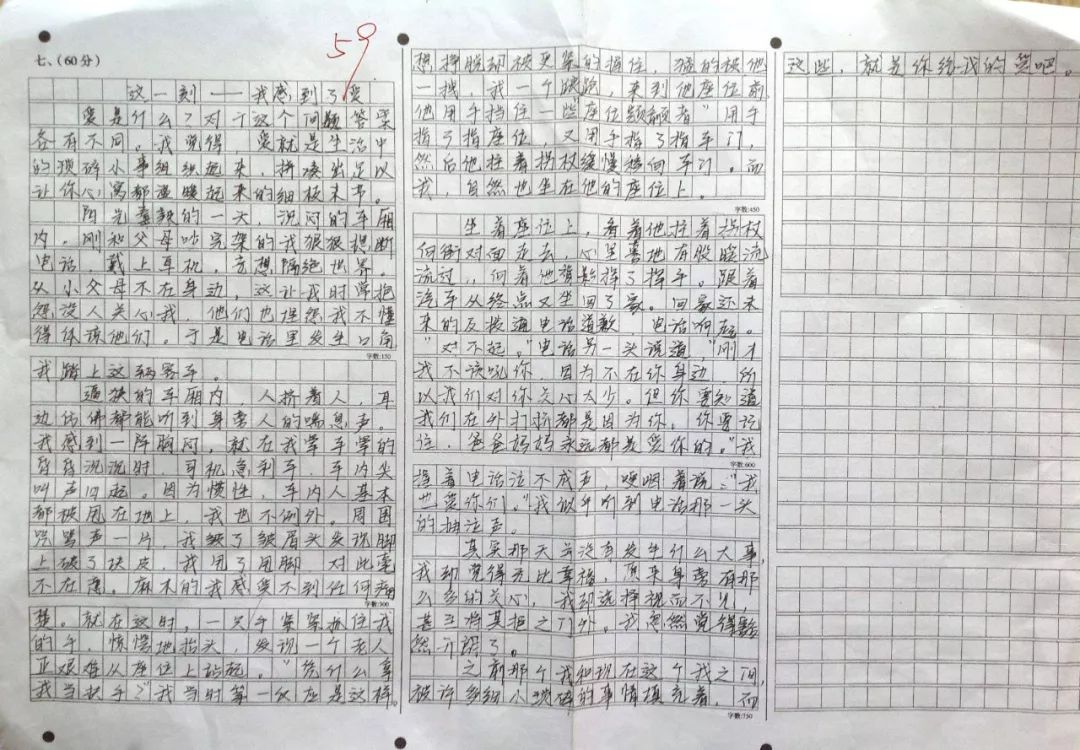 七、(60分)
59
这一刻——我感到了爱
爱是什么?对于这个问题答案
各有不同。我觉得,爱就是生活中
的琐碎小事组织起来,拼凑出足以
让你心窝都温暖起来的细枝末节。
阳光毒辣的一天,沉闷的车厢
内。刚和父母吵完架的我狠狠挂断
电话,戴上耳机,妄想隔绝世界。
从小父母不在身边,这让我时常抱
怨没人关心我,他们也埋怨我不懂
得体谅他们。于是电话里发生口角
字数:150
我踏上这辆客车。
逼狭的车厢内,人挤着人,耳
边仿佛都能听到身旁人的喘息声。
我感到一阵胸闷,就在我掌车掌的
昏昏沉沉时,司机急刹车,车内尖
叫声四起。因为惯性,车内人基本
都被甩在地上,我也不例外。周围
骂声一片,我皱了皱眉头发现脚
上破了块皮,我甩了甩脚,对此毫
不在意。麻木的我感受不到任何痛
字数:300
楚。就在这时,一只手紧紧抓住我
的手,惊慌地抬头,发现一个老人
正艰难从座位上站起。"凭什么拿
我当扶手?"我当时第一反应是这样。
想挣脱却被更紧的握住,猛的被他
一拽,我一个踉跄,来到他座位前
他用手挡住一些"座位觊觎者"用手
指了指座位,又用手指了指车门,
然后他拄着拐杖缓慢移向车门。而
我,自然也坐在他的座位上。
字数:450
坐着座位上,看着他拄着拐杖
向街对面走去,心里蓦地有股暖流
流过,向着他背影挥了挥手。跟着
汽车从终点又坐回了家。回家还未
来的及拨通电话道歉,电话响起。
"对不起。"电话另一头说道,"刚才
我不该吼你,因为不在你身边,所
以我们对你关心太少。但你要知道
我们在外打拼都是因为你,你要记
住,爸爸妈妈永远都是爱你的。"我
字数:600
握着电话泣不成声,哽咽着说:"我
也爱你们。"我似乎听到电话那一头
的抽泣声。
其实那天并没有发生什么大事,
我却觉得无比幸福,原来身旁有那
么多的关心,我却选择视而不见,
甚至将其拒之门外。我忽然觉得豁
然开朗了。
之前那个我和现在这个我之间,
被许多细小琐碎的事情填充着,而
字数:750
这些,就是你给我的爱吧。